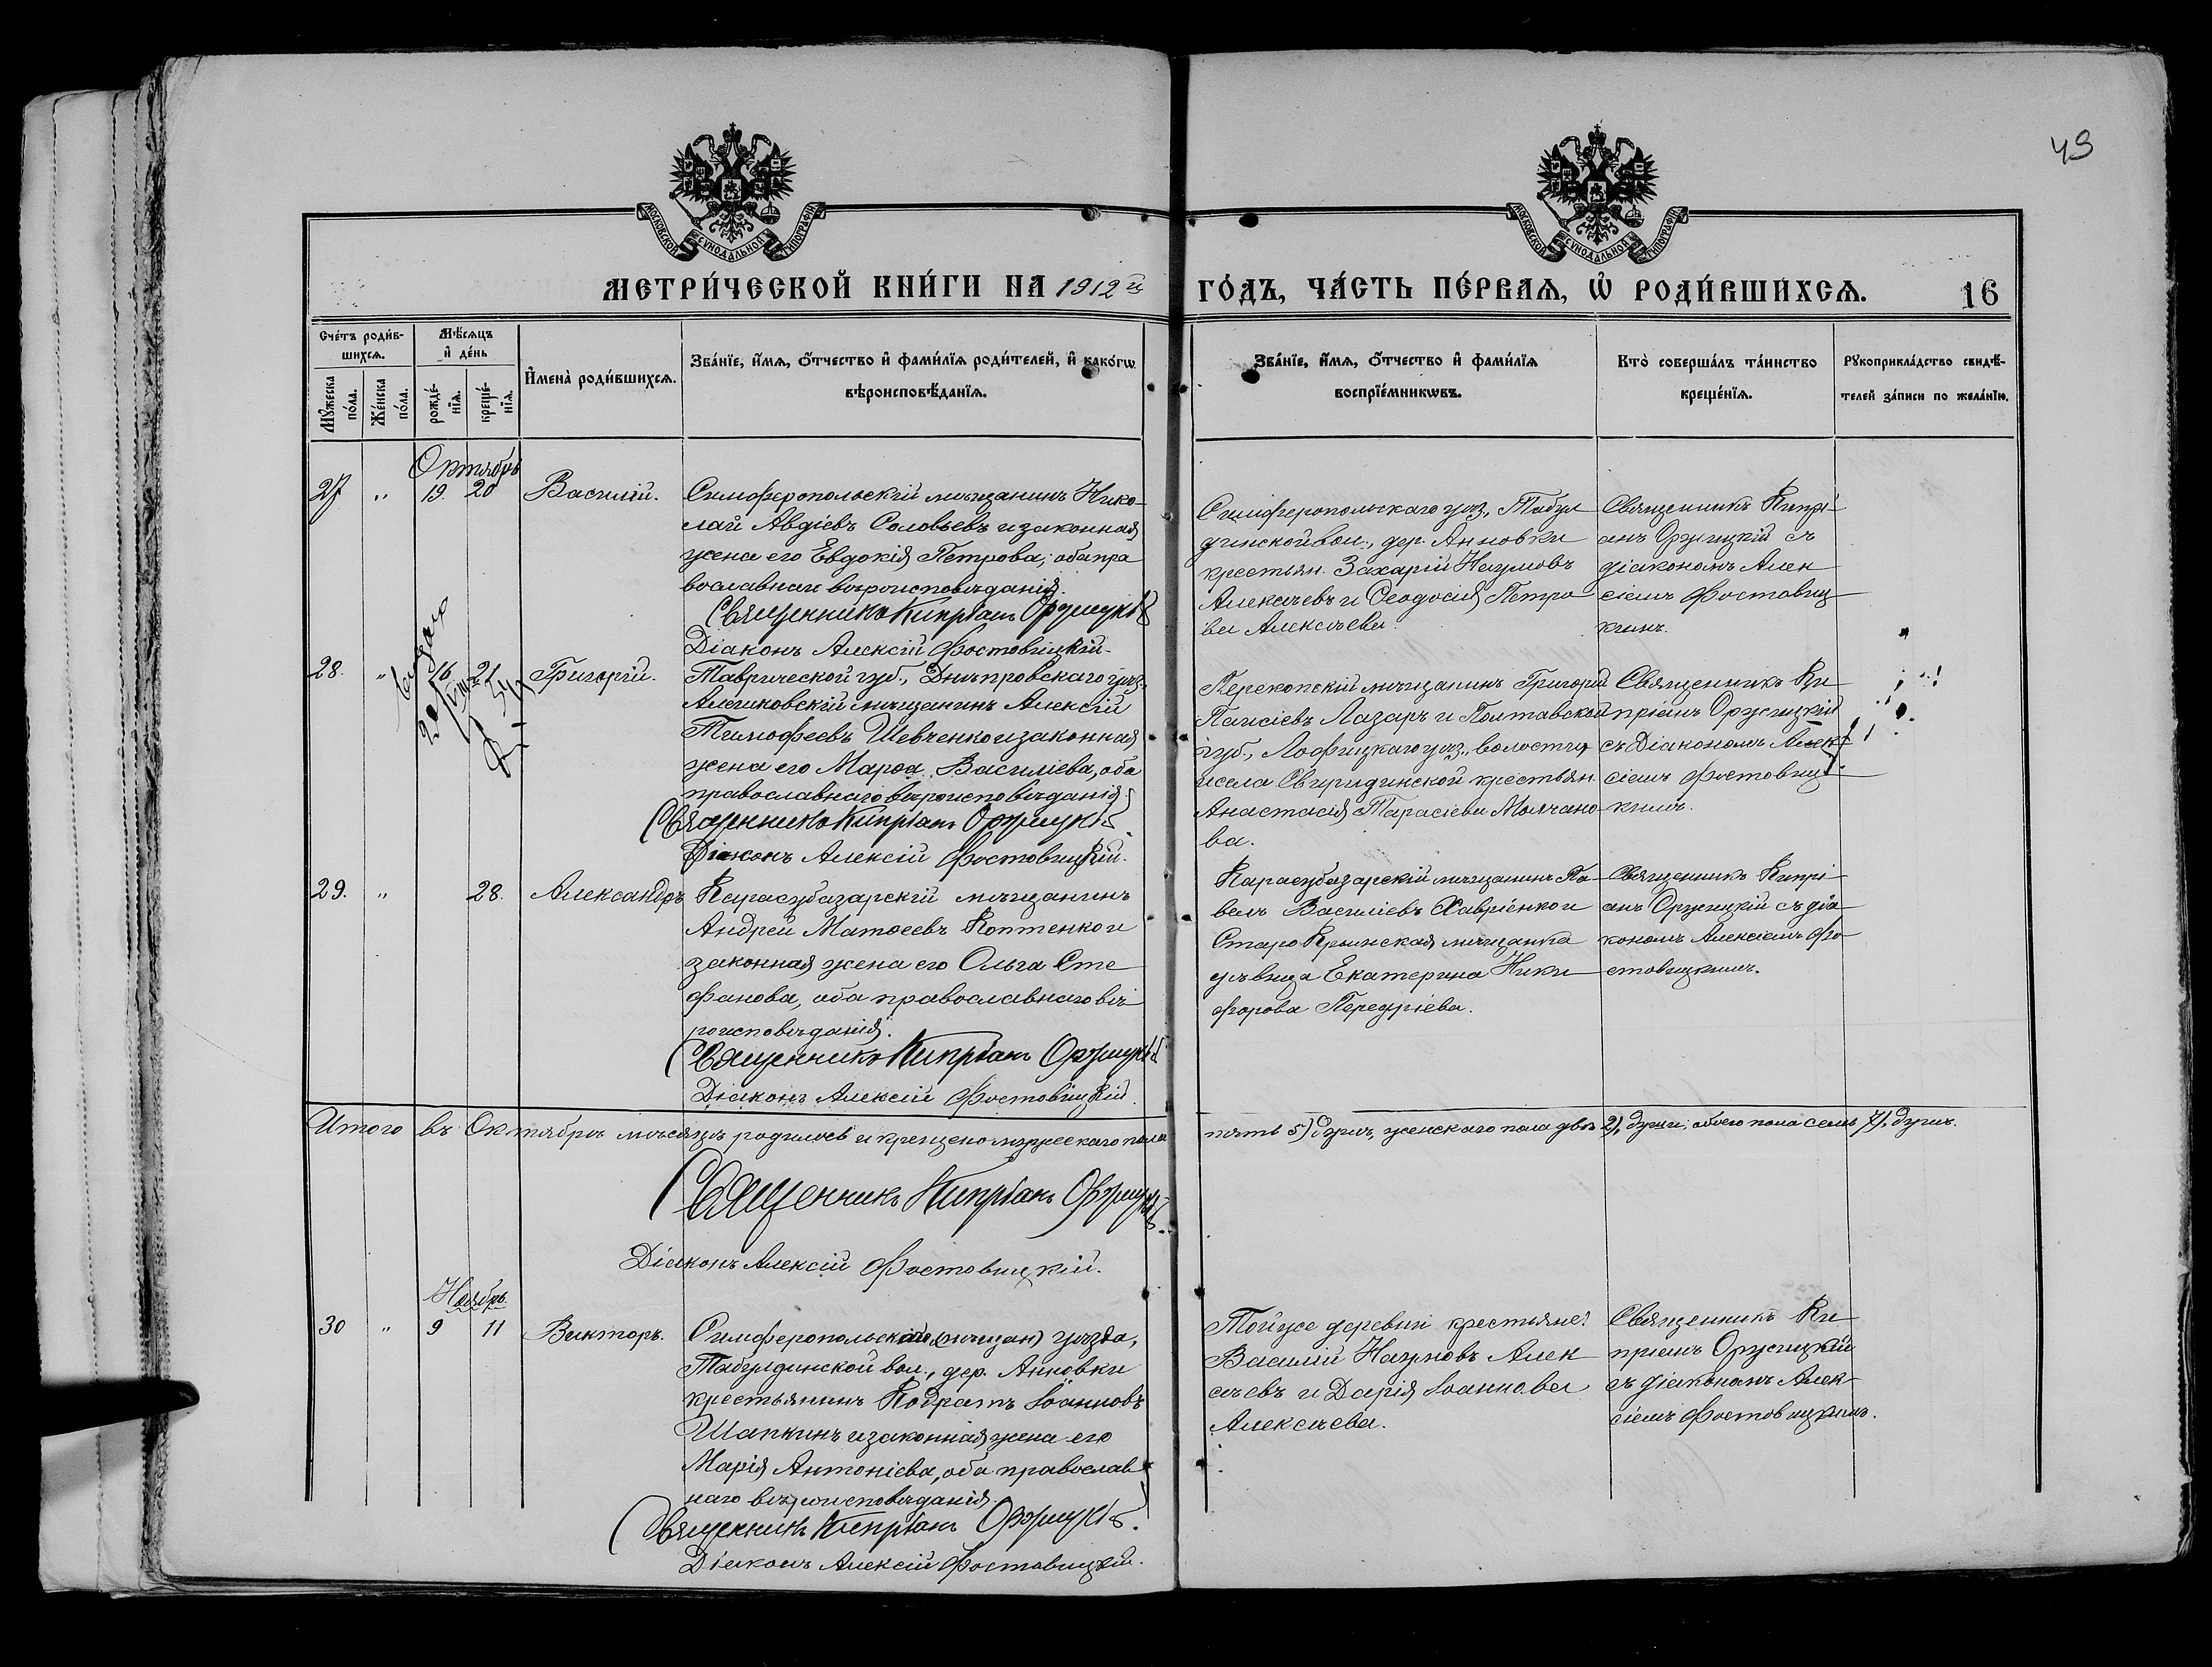 49
МОСКОВСКОЙ СѴНОДАЛЬНОЙ ТИПОГРАФІИ
МОСКОВСКОЙ СѴНОДАЛЬНОЙ ТИПОГРАФІИ
МЕТРИ́ЧЕСКОЙ КНИ́ГИ НА 1912й ГО́ДЪ, ЧА́СТЬ ПЕ́РВАѦ, Ѡ҆ РОДИ́ВШИХСѦ. 16
Сче́тъ роди́в-
шихсѧ.
Мꙋ́жеска по́ла.
Же́нска по́ла.
Мѣ́сѧцъ
и҆ де́нь
рожде́-
нїѧ.
креще́-
нїѧ.
И҆мена̀ роди́вшихсѧ.
Зва́нїе, и҆́мѧ, ѻ҆́тчество и҆ фами́лїѧ роди́телей, и҆ како́гѡ
вѣроисповѣ́данїѧ.
Зва́нїе, и҆́мѧ, ѻ҆́тчество и҆ фами́лїѧ
воспрїе́мникѡвъ.
Кто̀ соверша́лъ та́инство
креще́нїѧ.
Рꙋкоприкла́дство свидѣ́-
телей за́писи по жела́нїю.
Октябрь
27 " 19. 20 Василій.
Симферопольскій мѣщанинъ Нико-
лай Авдіевъ Соловьевъ и законная
жена его Евдокія Петрова, оба пра
вославнаго вѣроисповѣданія.
Священникъ Кипріанъ Оржицкій
Діаконъ Алексій Фостовицкій.
Симферопольскаго уѣз., Табул
динской вол., дер. Анновки
крестьян. Захарій Наумовъ
Алексѣевъ и Ѳеодосія Петро
ва Алексѣева.
Священникъ Кипрі-
анъ Оржицкій съ
діакономъ Алек
сіемъ Фостовиц
кимъ.
28. " 16 21 Григорій.
Таврической губ., Днѣпровскаго уѣз.
Алешковскій мѣщанинъ Алексій
Тимофеевъ Шевченко и законная
жена его Марѳа Василіева, оба
православнаго вѣроисповѣданія.
Священникъ Кипріанъ Оржицкій.
Діаконъ Алексій Фостовицкій.
Перекопскій мѣщанинъ Григорій
Паисіевъ Лазарь и Полтавской
губ., уѣз., волости
и села крестьян.
Анастасія Тарасіева Молчано-
ва.
Священникъ Ки
пріанъ Оржицкій
съ Діакономъ Алек
сіемъ Фостовиц
кимъ.
29. " 28. Александръ
Карасубазарскій мѣщанинъ
Андрей Матѳеевъ Коптенко и
законная жена его Ольга Сте
фанова, оба православнаго вѣ
роисповѣданія.
Священникъ Кипріанъ Оржицкій
Діаконъ Алексій Фостовицкій.
Карасубазарскій мѣщанинъ Па-
велъ Василіевъ Хавріенко и
Старо Крымская мѣщанка
дѣвица Екатерина Ники
форова
Священникъ Кипрі-
анъ Оржицкій съ діа
кономъ Алексіемъ Фо
стовицкимъ.
Итого въ Октябрѣ мѣсяцѣ родилось и крещено мужескаго пола пять 5) душъ, женскаго пола двѣ 2), души; обоего пола семь 7). душъ.
Священникъ Кипріанъ Оржицкій.
Діаконъ Алексій Фостовицкій.
Ноябрь.
30 " 9 11 Викторъ.
Симферопольскаго (мѣщан) уѣзда,
Табулдинской вол., дер. Анновки
крестьянинъ Кодратъ Іоанновъ
Шапкинъ и законная жена его
Марія Антоніева, оба православ
наго вѣроисповѣданія.
Священникъ Кипріанъ Оржицкій.
Діаконъ Алексій Фостовицкій.
Той же деревни крестьяне:
Василій Наумовъ Алек
сѣевъ и Дарія Іоаннова
Алексѣева.
Священникъ Ки
пріанъ Оржицкій
съ діакономъ Алек-
сіемъ Фостовицкимъ.